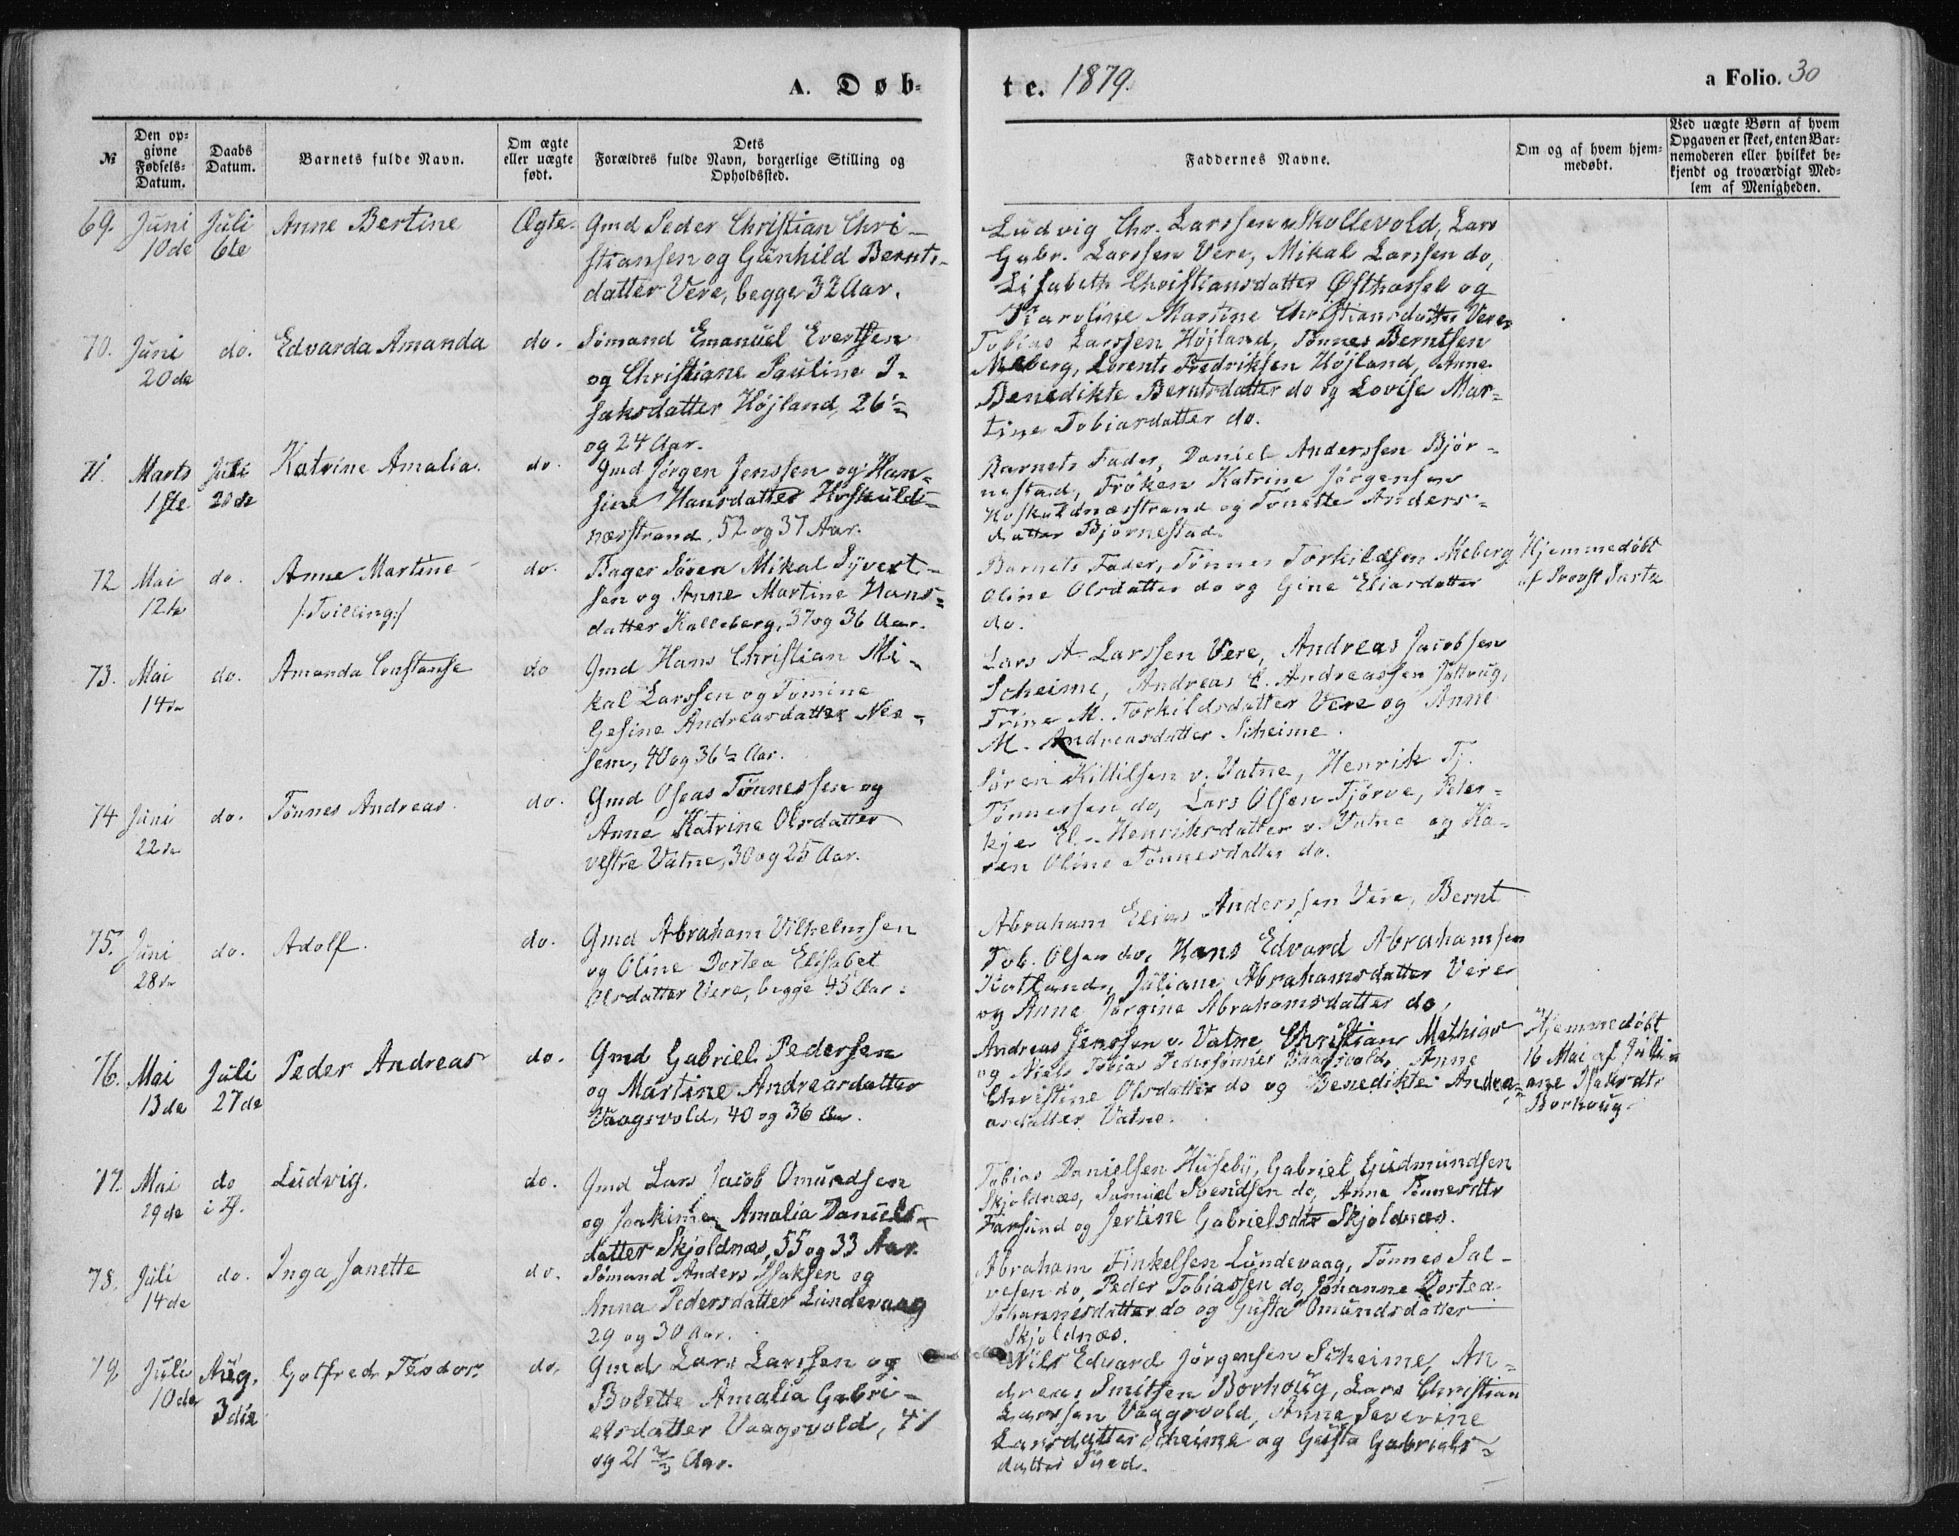 A. Døb-
te. 1879.
a Folio. 30
№
Den op-
givne
Fødsels-
Datum.
Daabs
Datum.
Barnets fulde Navn.
Om ægte
eller uægte
født.
Dets
Forældres fulde Navn, borgerlige Stilling og
Opholdssted.
Faddernes Navne.
Om og af hvem hjem-
medøbt.
Ved uægte Børn af hvem
Opgaven er skeet, enten Bar-
nemoderen eller hvilket be-
kjendt og troværdigt Med-
lem af Menigheden.
69. Juni 10de
Juli 6te
Anne Bertine
Ægte.
Gmd Peder Christian Chri-
stiansen og Gunhild Bernts-
datter Vere, begge 32 Aar.
Ludvig Chr. Larssen Skollevold, Lars
Gabr. Larssen Vere, Mikal Larssen do,
Lisabeth Christiansdatter Østhassel og
Karoline Martine Christiansdatter Vere
70. Juni 20de
do.
Edvarda Amanda
do.
Sømand Emanuel Evertsen
og Christiane Pauline I-
saksdatter Højland, 26½
og 24 Aar.
Tobias Larssen Højland, Tønnes Berntsen
Meberg, Lorents Fredriksen Højland, Anne
Benedikte Berntsdatter do og Lovise Mar-
tine Tobiasdatter do.
71. Marts 1ste
Juli 20de
Katrine Amalia.
do.
Gmd Jørgen Jenssen og Han-
sine Hansdatter Hoskulds-
næsstrand, 52 og 37 Aar.
Barnets Fader, Daniel Anderssen Bjør-
nestad, Frøken Katrine Jørgensen
Hoskuldnæsstrand og Tonette Anders-
datter Bjørnestad.
72 Mai 12te
do.
Anne Martine
/:Tvilling:/
do.
Bager Søren Mikal Syvert-
sen og Anne Martine Hans-
datter Kalleberg, 37 og 36 Aar.
Barnets Fader, Tønnes Torkildsen Meberg
Oline Olsdatter do og Gine Eliasdatter
do.
Hjemmedøbt
af Provst
73. Mai 14de
do.
Amanda Constanse
do
Gmd Hans Christian Mi-
kal Larssen og Tomine
Gesine Andreasdatter Nes-
sem, 40 og 36½ Aar.
Lars A. Larssen Vere, Andreas Jacobsen
Scheime, Andreas E. Andreassen
Trine M. Torkildsdatter Vere og Anne
M. Andreasdatter Scheime.
74 Juni 22de
do.
Tønnes Andreas.
do.
Gmd Oseas Tønnessen og
Anne Katrine Olsdatter
vestre Vatne, 30 og 25 Aar.
Søren Kittilsen v. Vatne, Henrik Tj.
Tønnessen do, Lars Olsen Tjørve, Peter-
kje El. Henriksdatter v. Vatne og Ka-
ren Oline Tønnesdatter do.
75. Juni 28de
do.
Adolf.
do.
Gmd Abraham Vilhelmsen
og Oline Dortea Elisabet
Olsdatter Vere, begge 43 Aar.
Abraham Elias Anderssen Vere, Bernt
Tob. Olsen do, Hans Edvard Abrahamsen
Katland, Juliane Abrahamsdatter Vere
og Anne Jørgine Abrahamsdatter do,
76. Mai 13de
Juli 27de
Peder Andreas
do.
Gmd Gabriel Pedersen
og Martine Andreasdatter
Vaagsvold, 40 og 36 Aar.
Andreas Jenssen v. Vatne, Christian Mathias
og Niels Tobias Pedersønner Vaagsvold, Anne
Christine Olsdatter do og Benedikte Andre-
asdatter Vatne.
Hjemmedøbt
16 Mai af Juli-
ane
Borhoug.
77. Mai 29de
do
i Hj.
Ludvig.
do.
Gmd Lars Jacob Omundsen
og Joakime Amalia Daniels-
datter Skjoldnæs, 55 og 33 Aar.
Tobias Danielsen Huseby, Gabriel Gudmundsen
Skjoldnæs, Samuel Svendsen do, Anna Tønnesdtr
Farsund og Jertine Gabrielsdtr Skjoldnæs.
78. Juli 14de
do.
Inga Janette
do.
Sømand Anders Isaksen og
Anna Pedersdatter Lundevaag
29 og 30 Aar.
Abraham Finkelsen Lundevaag, Tønnes Sal-
vesen do, Peder Tobiassen do, Johanne Dortea
Johannesdatter do og Gusta Omundsdatter
Skjoldnæs.
79 Juli 10de
Aug. 3die
Gotfred Teodor.
do.
Gmd Lars Larssen og
Bolette Amalia Gabri-
elsdatter Vaagsvold, 41
og 21⅔ Aar.
Nils Edvard Jørgensen Scheime, An-
dreas Smitsen Borhoug, Lars Christian
Larssen Vaagsvold, Anne Severine
Larsdatter Scheime og Gusta Gabriels-
datter